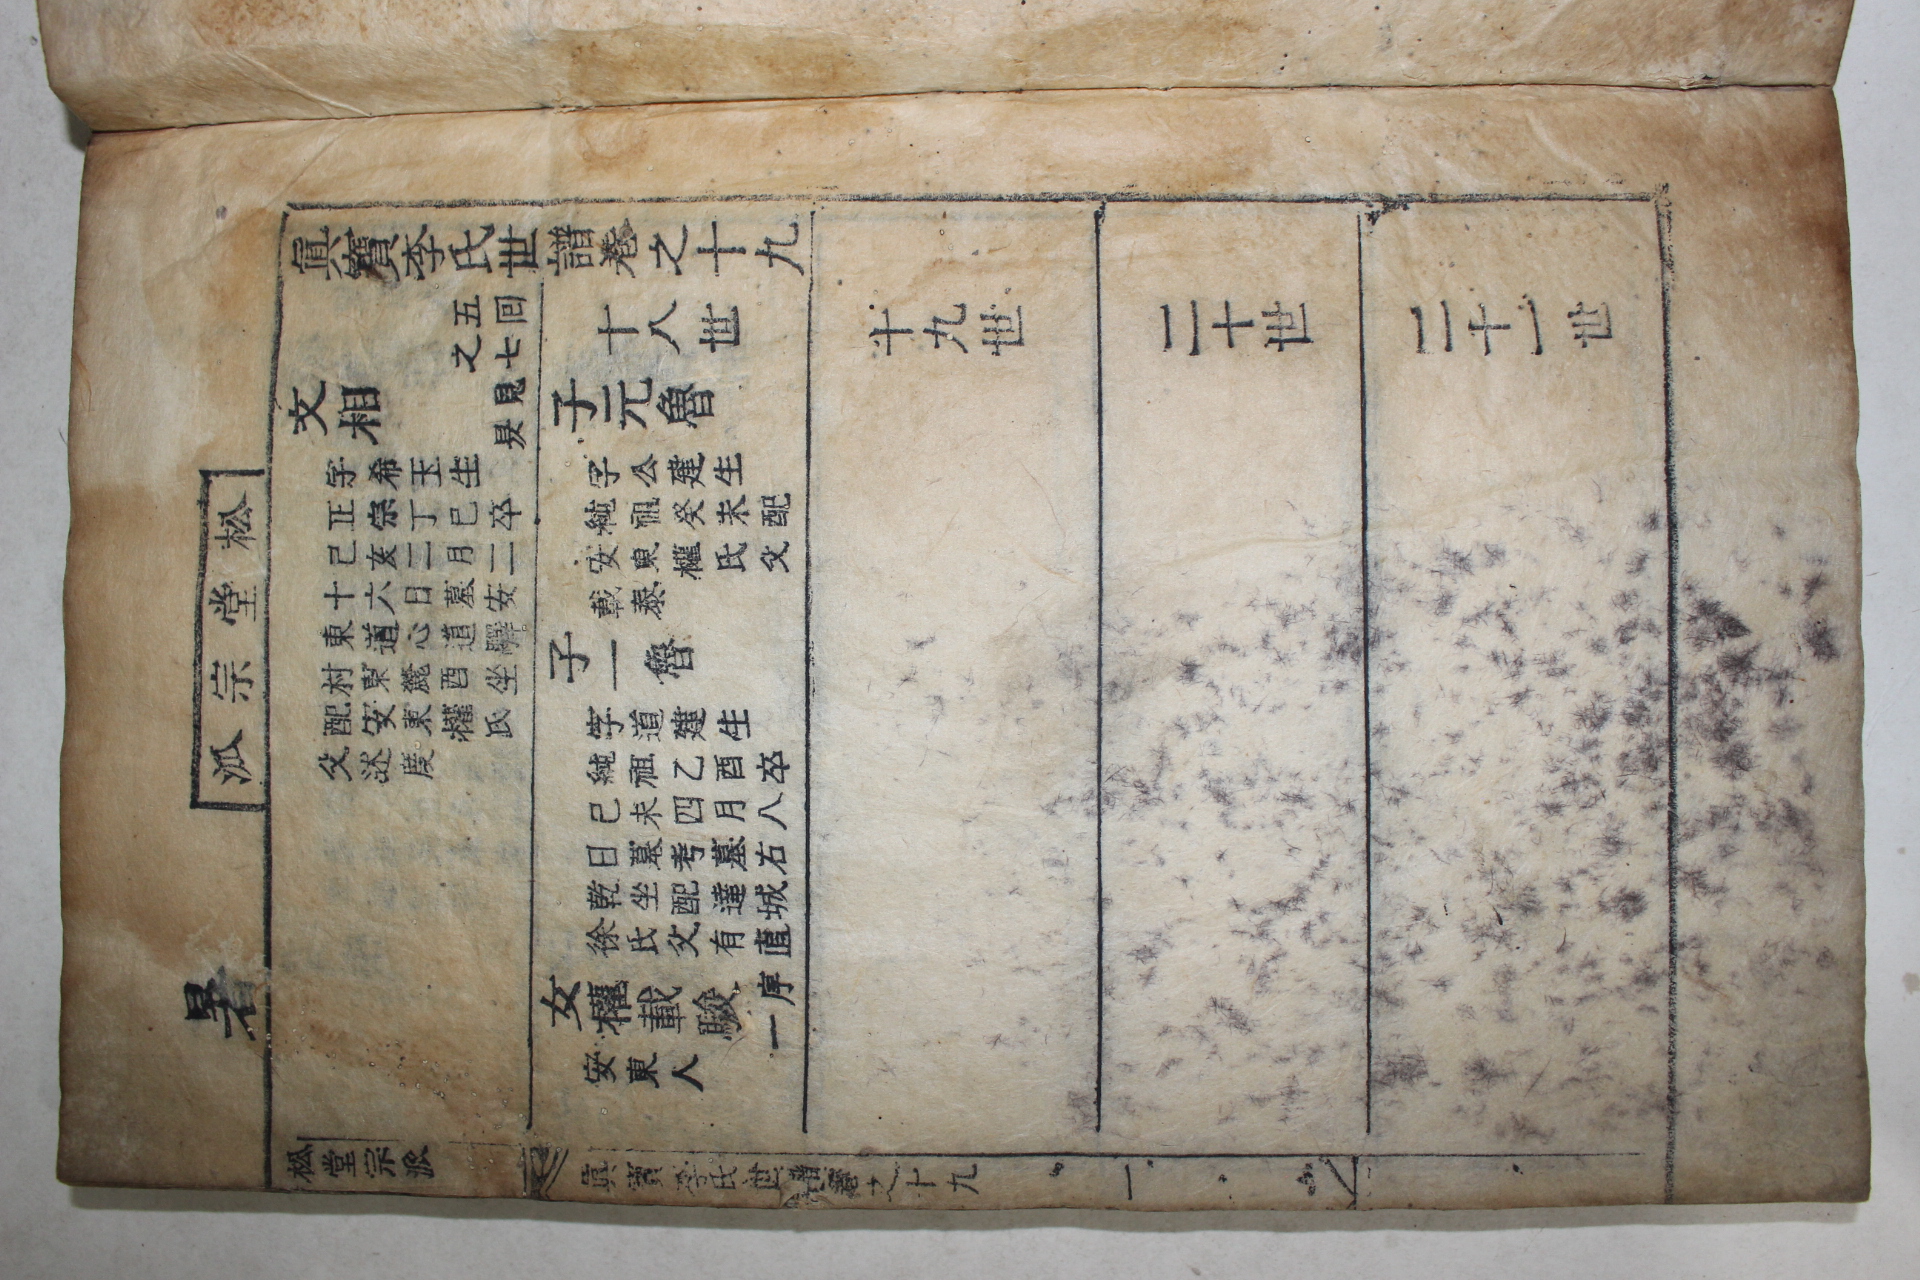 松堂宗派
暑
眞寶李氏世譜卷之十九
五囘
之七
見
昃
文相
字希玉生
正宗丁巳卒
己亥二月二
十六日墓安
東道心道驛
村東麓酉坐
配安東權氏
父述度
十八世
子元魯
字公建生
純祖癸未配
安東權氏父
載泰
子一魯
字道建生
純祖乙酉卒
己未四月八
日墓考墓右
乾坐配達城
徐氏父有直
女權載駿
序一
安東人
十九世
二十世
二十一世
松堂宗派
眞寶李氏世譜卷之十九
一